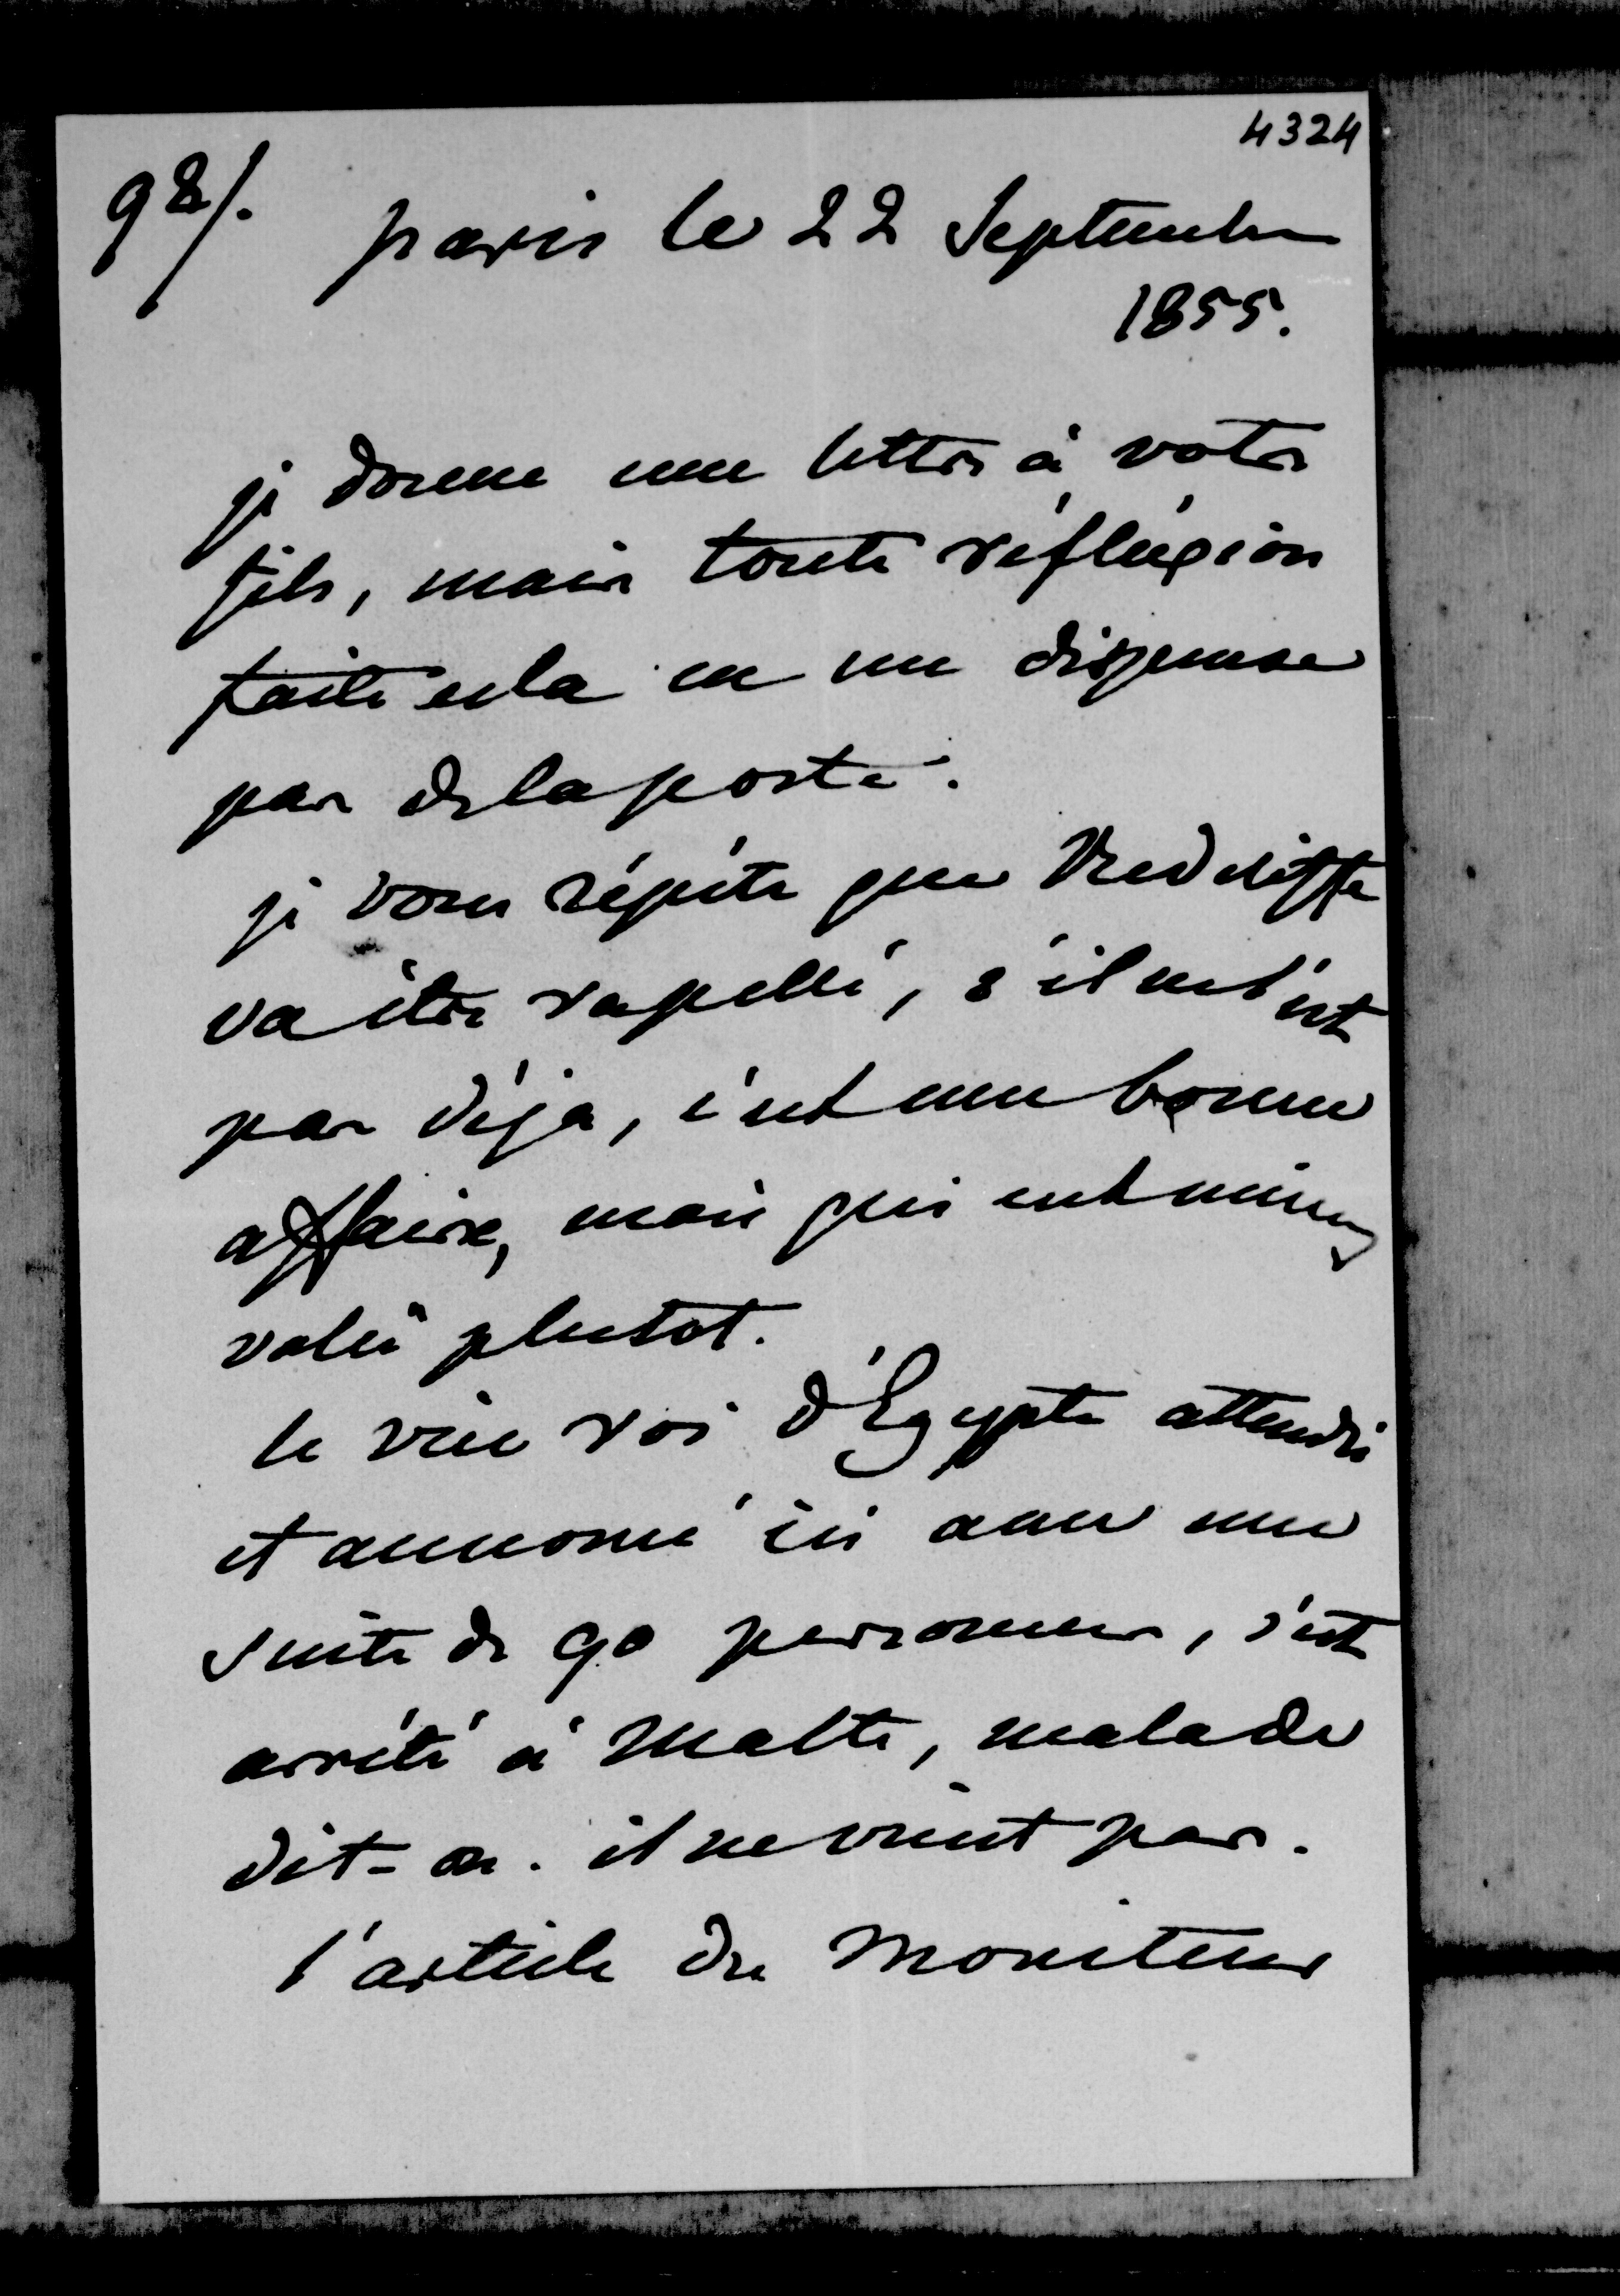 4324
98/. paris le 22 Septembre
1855.
je donne une lettre à votre
fils, mais toute réflexion
faite cela ne me dispense
pas de la poste.
je vous répète que Redcliffe
va être rapellé, s'il ne l'est
pas déja, c'est une bonne
affaire, mais qui eut mieux
valu plutot.
le vice roi d'Egypte attendu
et annoncé ici avec une
suite de 90 personnes, s'est
arrêté à Malte, malade
dit-on. il ne vient pas.
l'article du Moniteur